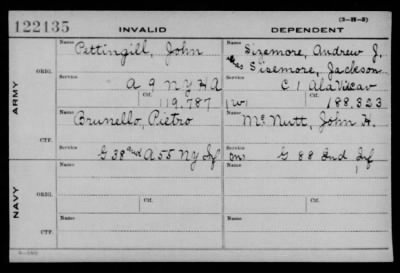 (3-H-3)
122135 INVALID DEPENDENT
ARMY
ORIG.
Name Pettingill, John
Name Sizemore, Andrew J.
alias Sisemore, Jackson
Service A 9 N Y H A
Ctf. 119.787
Service C 1 Ala Vi Cav
(W) Ctf. 188.323
CTF.
Name Brunello, Pietro
Name McNutt, John H.
Service G 38 and A 55 N Y Inf
Service G 88 Ind Inf
NAVY
ORIG.
Name Name
Service Ctf. Service Ctf.
CTF.
Name Name
Service Service